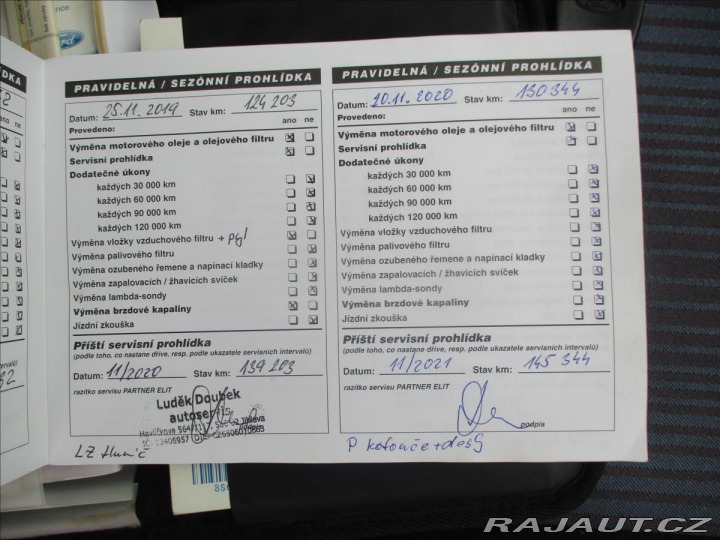 nce
Ford
PRAVIDELNÁ / SEZÓNNÍ PROHLÍDKA
Datum: 25.11.2019 Stav km: 124 203
Provedeno: ano ne
Výměna motorového oleje a olejového filtru
Servisní prohlídka
Dodatečné úkony
každých 30 000 km
každých 60 000 km
každých 90 000 km
každých 120 000 km
Výměna vložky vzduchového filtru + pyl
Výměna palivového filtru
Výměna ozubeného řemene a napínací kladky
Výměna zapalovacích / žhavicích svíček
Výměna lambda-sondy
Výměna brzdové kapaliny
Jízdní zkouška
Příští servisní prohlídka
(podle toho, co nastane dříve, resp. podle ukazatele servisních intervalů)
Datum: 11/2020 Stav km: 139 203
razítko servisu PARTNER ELIT
Luděk Doubek
autoservis
Havlíčkova
IČ: 13406957
LZ
PRAVIDELNÁ / SEZÓNNÍ PROHLÍDKA
Datum: 20.11.2020 Stav km: 130 344
Provedeno: ano ne
Výměna motorového oleje a olejového filtru
Servisní prohlídka
Dodatečné úkony
každých 30 000 km
každých 60 000 km
každých 90 000 km
každých 120 000 km
Výměna vložky vzduchového filtru
Výměna palivového filtru
Výměna ozubeného řemene a napínací kladky
Výměna zapalovacích / žhavicích svíček
Výměna lambda-sondy
Výměna brzdové kapaliny
Jízdní zkouška
Příští servisní prohlídka
(podle toho, co nastane dříve, resp. podle ukazatele servisních intervalů)
Datum: 11/2021 Stav km: 145 344
razítko servisu PARTNER ELIT
podpis
P kotouče + desky
RAJAUT.CZ